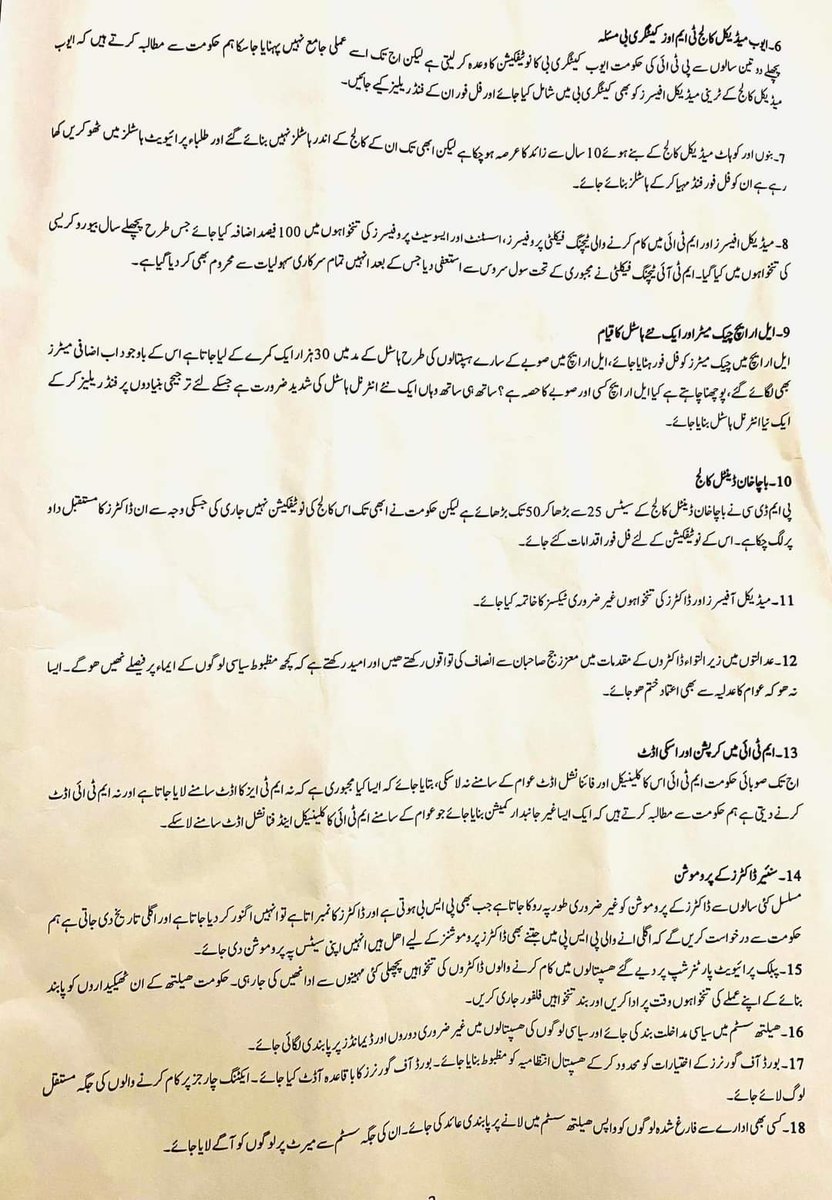 6۔ ایوب میڈیکل کالج ٹی ایم اوز کیٹیگری بی مسئلہ
پچھلے دو تین سالوں سے پی ٹی آئی کی حکومت ایوب کیٹیگری بی کا نوٹیفکیشن کا وعدہ کر لیتی ہے لیکن اج تک اسے عملی جامع نہیں پہنایا جا سکا ہم حکومت سے مطالبہ کرتے ہیں کہ ایوب
میڈیکل کالج کے ٹرینی میڈیکل افیسرز کو بھی کیٹیگری بی میں شامل کیا جائے اور فل فور ان کے فنڈ ریلیز کیے جائیں۔
7۔ بنوں اور کوہاٹ میڈیکل کالج کے بنے ہوئے 10 سال سے زائد کا عرصہ ہو چکا ہے لیکن ابھی تک ان کے کالج کے اندر ہاسٹلز نہیں بنائے گئے اور طلباء پرائیویٹ ہاسٹلز میں ٹھوکریں کھا
رہے ہے ان کو فل فور فنڈ مہیا کر کے ہاسٹلز بنائے جائے۔
8۔ میڈیکل افیسرز اور ایم ٹی ائی میں کام کرنے والی ٹیچنگ فیکلٹی پروفیسرز، اسسٹنٹ اور ایسوسیٹ پروفیسرز کی تنخواہوں میں 100 فیصد اضافہ کیا جائے جس طرح پچھلے سال بیوروکریسی
کی تنخواہوں میں کیا گیا۔ ایم ٹی آئی ٹیچنگ فیکلٹی نے مجبوری کے تحت سول سروس سے استعفی دیا جس کے بعد انہیں تمام سرکاری سہولیات سے محروم بھی کر دیا گیا ہے۔
9۔ ایل ار ایچ چیک میٹر اور ایک نئے ہاسٹل کا قیام
ایل ار ایچ میں چیک میٹرز کو فل فور ہٹایا جائے، ایل ار ایچ میں صوبے کے سارے ہسپتالوں کی طرح ہاسٹل کے مد میں 30 ہزار ایک کمرے کے لیا جاتا ہے اس کے باوجود اب اضافی میٹرز
بھی لگائے گئے، پوچھنا چاہتے ہے کیا ایل ار ایچ کسی اور صوبے کا حصہ ہے؟ ساتھ ہی ساتھ وہاں ایک نئے انٹرنل ہاسٹل کی شدید ضرورت ہے جسکے لئے ترجیحی بنیادوں پر فنڈ ریلیز کر کے
ایک نیا انٹرنل ہاسٹل بنایا جائے۔
10۔ باچا خان ڈینٹل کالج
پی ایم ڈی سی نے باچا خان ڈینٹل کالج کے سیٹس 25 سے بڑھا کر 50 تک بڑھائے ہے لیکن حکومت نے ابھی تک اس کالج کی نوٹیفکیشن نہیں جاری کی جسکی وجہ سے ان ڈاکٹرز کا مستقبل داو
پر لگ چکا ہے۔ اس کے نوٹیفکیشن کے لئے فل فور اقدامات کئے جائے۔
11۔ میڈیکل آفیسرز اور ڈاکٹرز کی تنخواہوں غیر ضروری ٹیکسز کا خاتمہ کیا جائے۔
12۔ عدالتوں میں زیر التواء ڈاکٹروں کے مقدمات میں معزز جج صاحبان سے انصاف کی تواقوں رکھتے ھیں اور امید رکھتے ہے کہ کچھ مظبوط سیاسی لوگوں کے ایماء پر فیصلے نھیں ھوگے۔ ایسا
نہ ھو کہ عوام کا عدلیہ سے بھی اعتماد ختم ھو جائے۔
13۔ ایم ٹی ائی میں کرپشن اور اسکی اڈٹ
اج تک صوبائی حکومت ایم ٹی ائی اس کا کلینیکل اور فائنانشل اڈٹ عوام کے سامنے نہ لا سکی، بتایا جائے کہ ایسا کیا مجبوری ہے کہ نہ ایم ٹی ایز کا اڈٹ سامنے لایا جاتا ہے اور نہ ایم ٹی ائی اڈٹ
کرنے دیتی ہے ہم حکومت سے مطالبہ کرتے ہیں کہ ایک ایسا غیر جانبدار کمیشن بنایا جائے جو عوام کے سامنے ایم ٹی ائی کا کلینیکل اینڈ فنانشل اڈٹ سامنے لا سکے۔
14۔ سنئیر ڈاکٹرز کے پروموشن
مسلسل کئی سالوں سے ڈاکٹرز کے پروموشن کو غیر ضروری طور پہ روکا جاتا ہے جب بھی پی ایس بی ہوتی ہے اور ڈاکٹرز کا نمبر اتا ہے تو انہیں اگنور کر دیا جاتا ہے اور اگلی تاریخ دی جاتی ہے ہم
حکومت سے درخواست کریں گے کہ اگلی انے والی پی ایس پی میں جتنے بھی ڈاکٹرز پروموشنز کے لیے اھل ہیں انہیں اپنی سیٹس پہ پروموشن دی جائے۔
15۔ پبلک پرائیویٹ پارٹنرشپ پر دیے گئے ھسپتالوں میں کام کرنے والوں ڈاکٹروں کی تنخواہیں پچھلی کئی مہینوں سے ادا نھیں کی جا رہی۔ حکومت ھیلتھ کے ان ٹھیکیداروں کو پابند
بنائے کے اپنے عملے کی تنخواہوں وقت پر ادا کریں اور بند تنخواہیں فلفور جاری کریں۔
16۔ ھیلتھ سسٹم میں سیاسی مداخلت بند کی جائے اور سیاسی لوگوں کی ھسپتالوں میں غیر ضروری دوروں اور ڈیمانڈز پر پابندی لگائی جائے۔
17۔ بورڈ آف گورنرز کے اختیارات کو محدود کر کے ھسپتال انتظامیہ کو مظبوط بنایا جائے۔ بورڈ آف گورنرز کا باقاعدہ آڈٹ کیا جائے۔ ایکٹنگ چارجز پر کام کرنے والوں کی جگہ مستقل
لوگ لائے جائے۔
18۔ کسی بھی ادارے سے فارغ شدہ لوگوں کو واپس ھیلتھ سسٹم میں لانے پر پابندی عائد کی جائے۔ ان کی جگہ سسٹم سے میرٹ پر لوگوں کو آگے لایا جائے۔